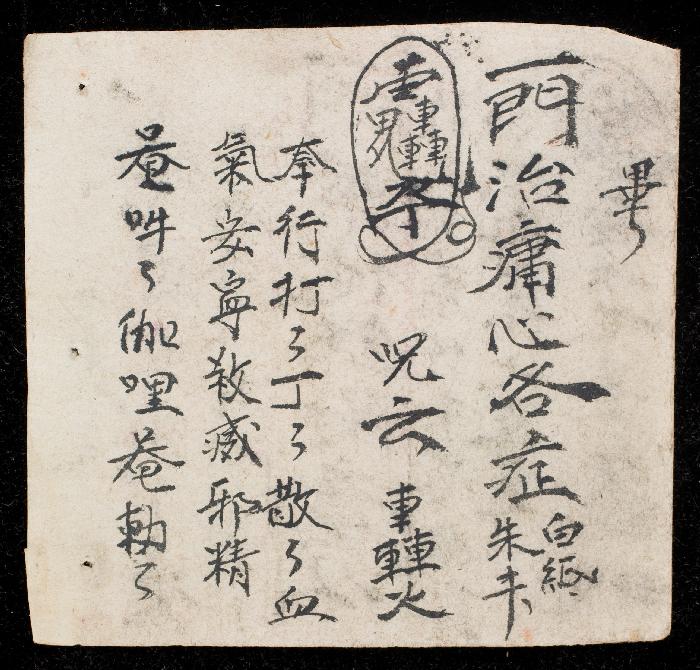 畢
一門治痛心各症 白紙朱未
咒云 車轟火
奉行打々丁々散々血
氣安寧殺滅邪精
奄吽々伽哩奄勅々